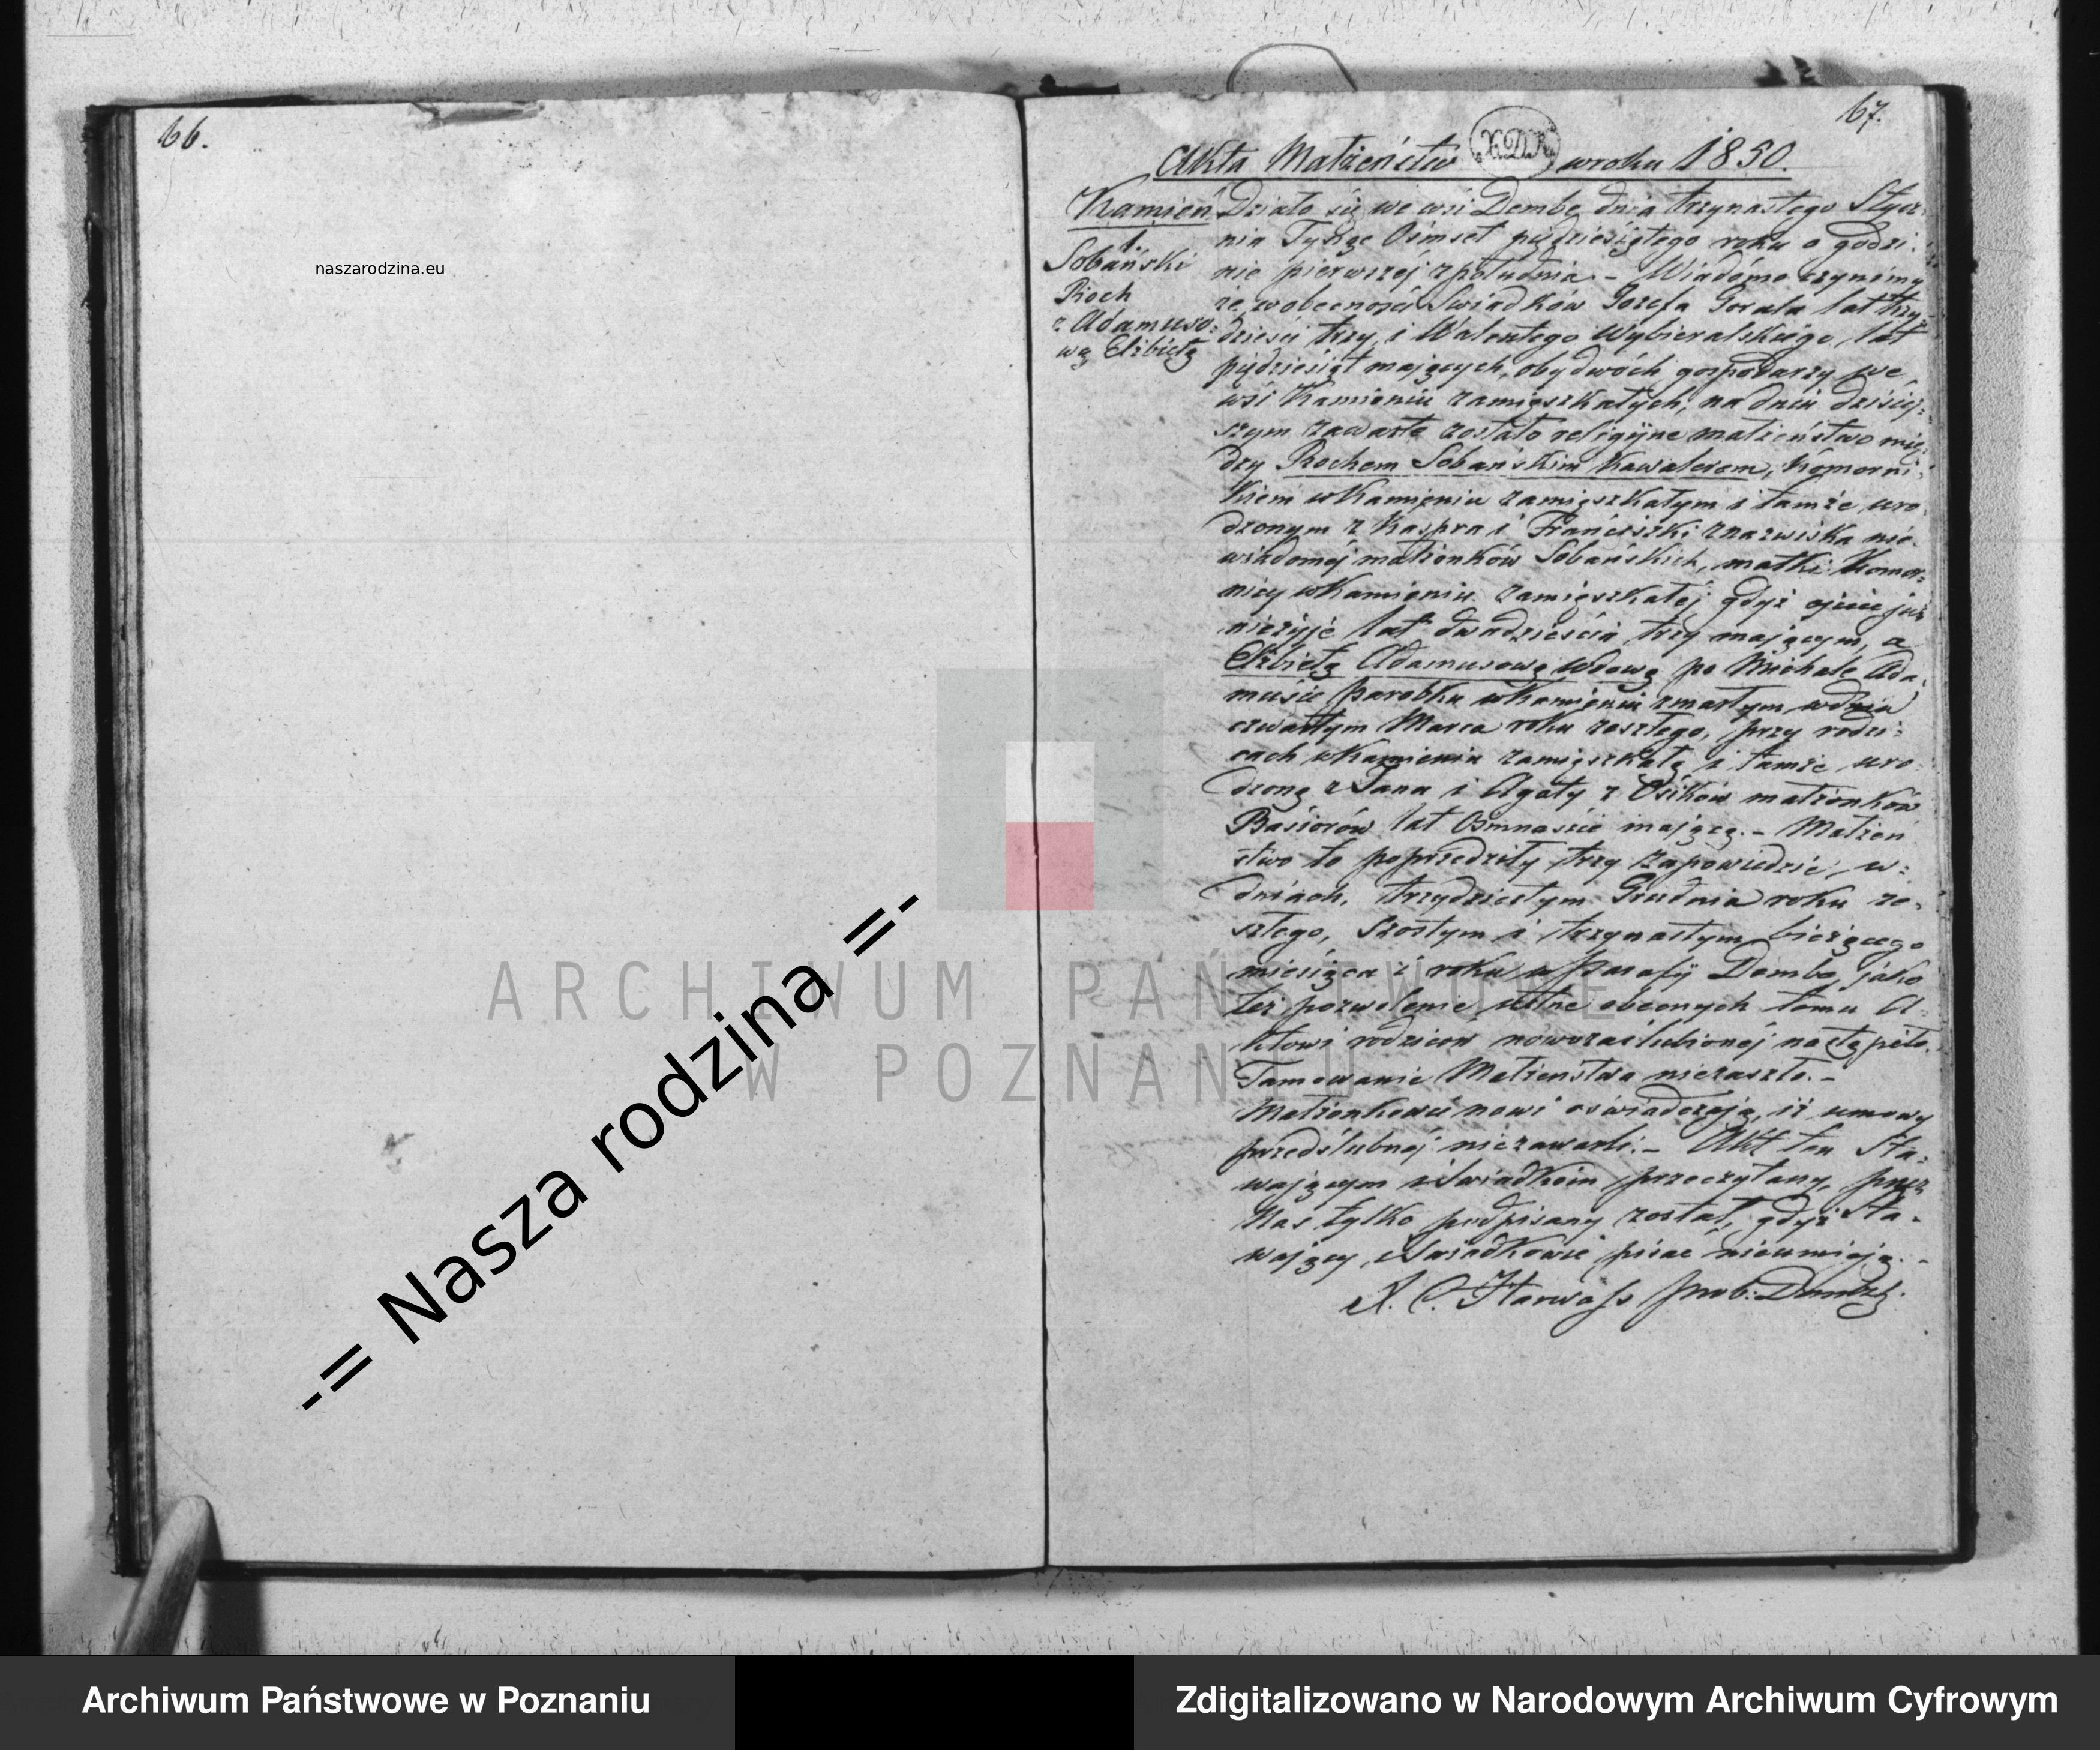 66.
naszarodzina.eu
-= Nasza rodzina =-
67.
Akta Małżeństw w roku 1850.
X.D.K.
Kamień
1.
Sobański
Roch
z Adamuso-
wą Elżbietą
Działo się we wsi Dembe dnia trzynastego Stycz-
nia Tysiąc Ośmset piędziesiątego roku o godzi-
nie pierwszéj z południa. – Wiadomo czynimy
że w obecności Swiadków Jozefa Gorala lat trzy-
dzieści trzy, i Walentego Wybieralskiego, lat
pięśdziesiąt mających, obydwóch gospodarzy we
wsi Kamieniu zamięszkałych, na dniu dzisiej-
szym zawarte zostało religijne małżeństwo mię-
dzy Rochem Sobańskim Kawalerem, Komorni-
kiem w Kamieniu zamięszkałym i tamże uro-
dzonym z Kaspra i Franciszki z nazwiska nie-
wiadoméj małżonków Sobańskich, matki Komor-
nicy w Kamieniu zamięszkałéj gdyż ojciec już
nieżyje lat dwadzieścia trzy mającym, a
Elżbietą Adamusową Wdową po Michale Ada-
musie parobku w Kamieniu zmarłym w dniu
czwartym Marca roku zeszłego, przy rodzi-
cach w Kamieniu zamięszkałą i tamże uro-
dzoną z Jana i Agaty z Osików małżonków
Basiorów lat Osmnaście mającą. – Małżeń
stwo to poprzedziły trzy zapowiedzie, w-
dniach, trzydziestym Grudnia roku ze-
szłego, Szostym i trzynastym bieżącego
miesiąca i roku w Parafij Dembe, jako
też pozwolenie ustne obecnych temu A-
ktowi rodzicow nowozaślubionéj nastąpiło.
Tamowanie Małżeństwa niezaszło. –
Małżonkowie nowi oświadczają, iż umowy
przedślubnéj niezawarli. – Akt ten Sta-
wającym i Swiadkom przeczytany, przez
Nas tylko podpisany został, gdyż Sta-
wający i Swiadkowie pisać nieumieją. –
X. C. Harwass Prob:
ARCHIWUM PAŃSTWOWE
W POZNANIU
Archiwum Państwowe w Poznaniu
Zdigitalizowano w Narodowym Archiwum Cyfrowym